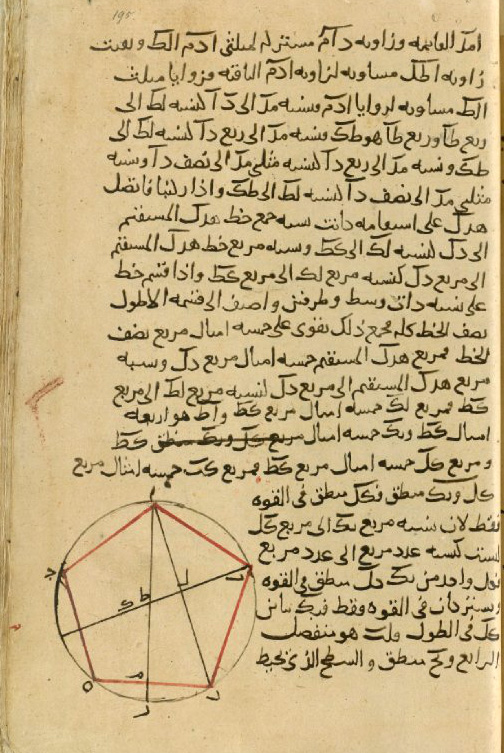 195
امد القائمه وزاويه دام مشتركه لمثلثى ادم الط وبقيت
زاويه اطل مساويه لزاويه ادم الباقيه فزوايا مثلث
الط مساويه لزوايا ادم ونسبه مد الى دا كنسبه لط الى
طا وربع طا هو طك ونسبه مد الى ربع دا كنسبه لط الى
طك ونسبه مد الى ربع دا كنسبه مثلى مد الى نصف دا ونسبه
مثلى مد الى نصف دا كنسبه لط الى طك واذا ركبنا فاتصل
هدل على استقامه كانت نسبه جميع خط هدل المستقيم
الى دل كنسبه لك الى كط ونسبه مربع خط هدل المستقيم
الى مربع دل كنسبه مربع لك الى مربع كط واذا قسم خط
على نسبه ذات وسط وطرفين واضيف الى قسمه الاطول
نصف الخط كله فجميع ذلك يقوى على خمسه امثال مربع نصف
الخط فمربع هدل المستقيم خمسه امثال مربع دل ونسبه
مربع هدل المستقيم الى مربع دل كنسبه مربع لط الى مربع
كط فمربع لك خمسه امثال مربع كط واط هو اربعه
امثال كط وبك خمسه امثال كط
ومربع كل خمسه امثال مربع كط فمربع كب خمسه امثال مربع
كل وبك منطق فكل منطق فى القوه
فقط لان نسبه مربع بك الى مربع كل
ليست كنسبه عدد مربع الى عدد مربع
فكل واحد من بك كل منطق فى القوه
ومشتركان فى القوه وفقط فبك يباين
كل فى الطول فلب هو منفصل
الرابع وبح منطق والسطح الذى يحيط
ا
ب
ل
ط
ك
ه
م
د